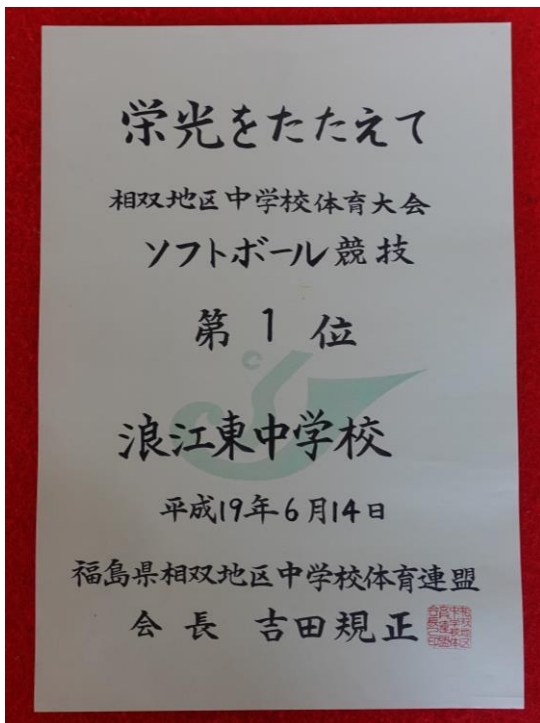 栄光をたたえて
相双地区中学校体育大会
ソフトボール競技
第1位
浪江東中学校
平成19年6月14日
福島県相双地区中学校体育連盟
会長 吉田規正